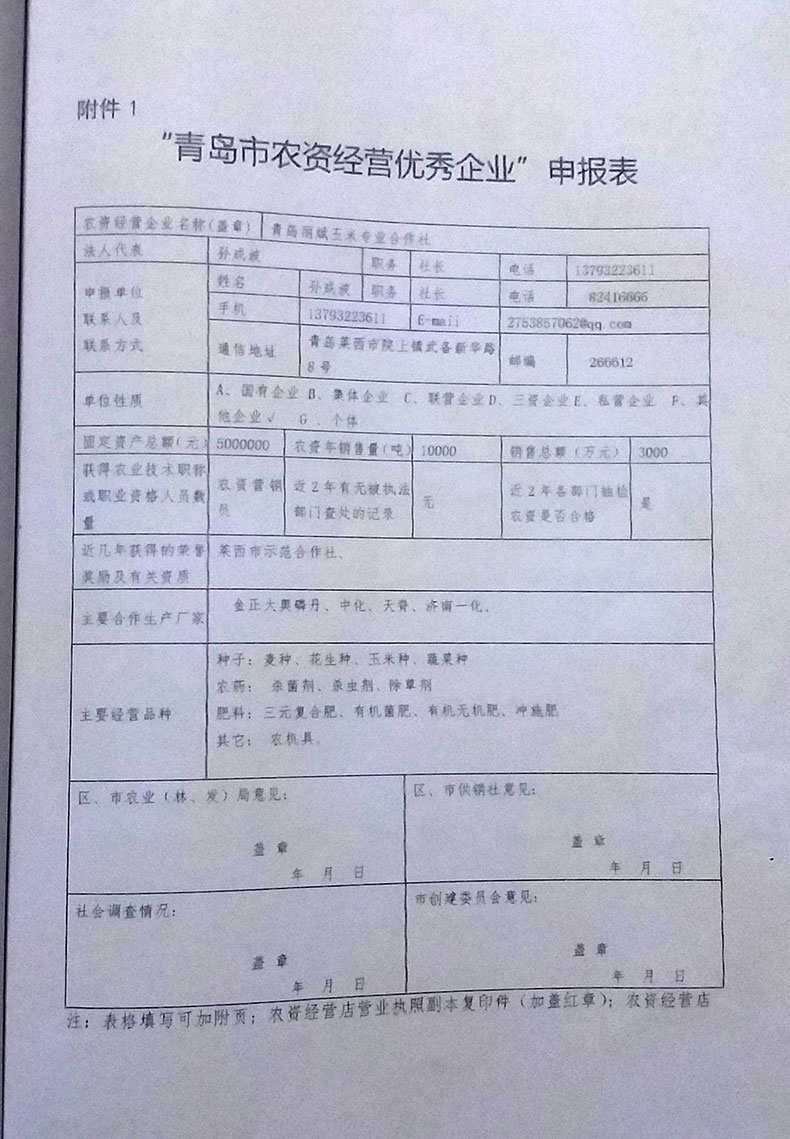 附件 1
“青岛市农资经营优秀企业”申报表
农资经营企业名称(盖章) 青岛丽斌玉米专业合作社
法人代表 孙成波 职务 社长 电话 13793223611
申报单位联系人及联系方式 姓名 孙成波 职务 社长 电话 82416666
手机 13793223611 E-mail 2753857062@qq.com
通信地址 青岛莱西市院上镇武备新华路
8号 邮编 266612
单位性质 A、国有企业 B、集体企业 C、联营企业 D、三资企业 E、私营企业 F、其
他企业√ G、个体
固定资产总额(元) 5000000 农资年销售量(吨) 10000 销售总额(万元) 3000
获得农业技术职称
或职业资格人员数
量
农资营销
员
近2年有无被执法
部门查处的记录
无
近2年各部门抽检
农资是否合格
是
近几年获得的荣誉
奖励及有关资质
莱西市示范合作社、
主要合作生产厂家 金正大奥磷丹、中化、天脊、济南一化、
主要经营品种
种子：麦种、花生种、玉米种、蔬菜种
农药： 杀菌剂、杀虫剂、除草剂
肥料：三元复合肥、有机菌肥、有机无机肥、冲施肥
其它： 农机具。
区、市农业(林、发)局意见：
盖 章
年 月 日
区、市供销社意见：
盖 章
年 月 日
社会调查情况：
盖 章
年 月 日
市创建委员会意见：
盖 章
年 月 日
注：表格填写可加附页；农资经营店营业执照副本复印件(加盖红章)；农资经营店